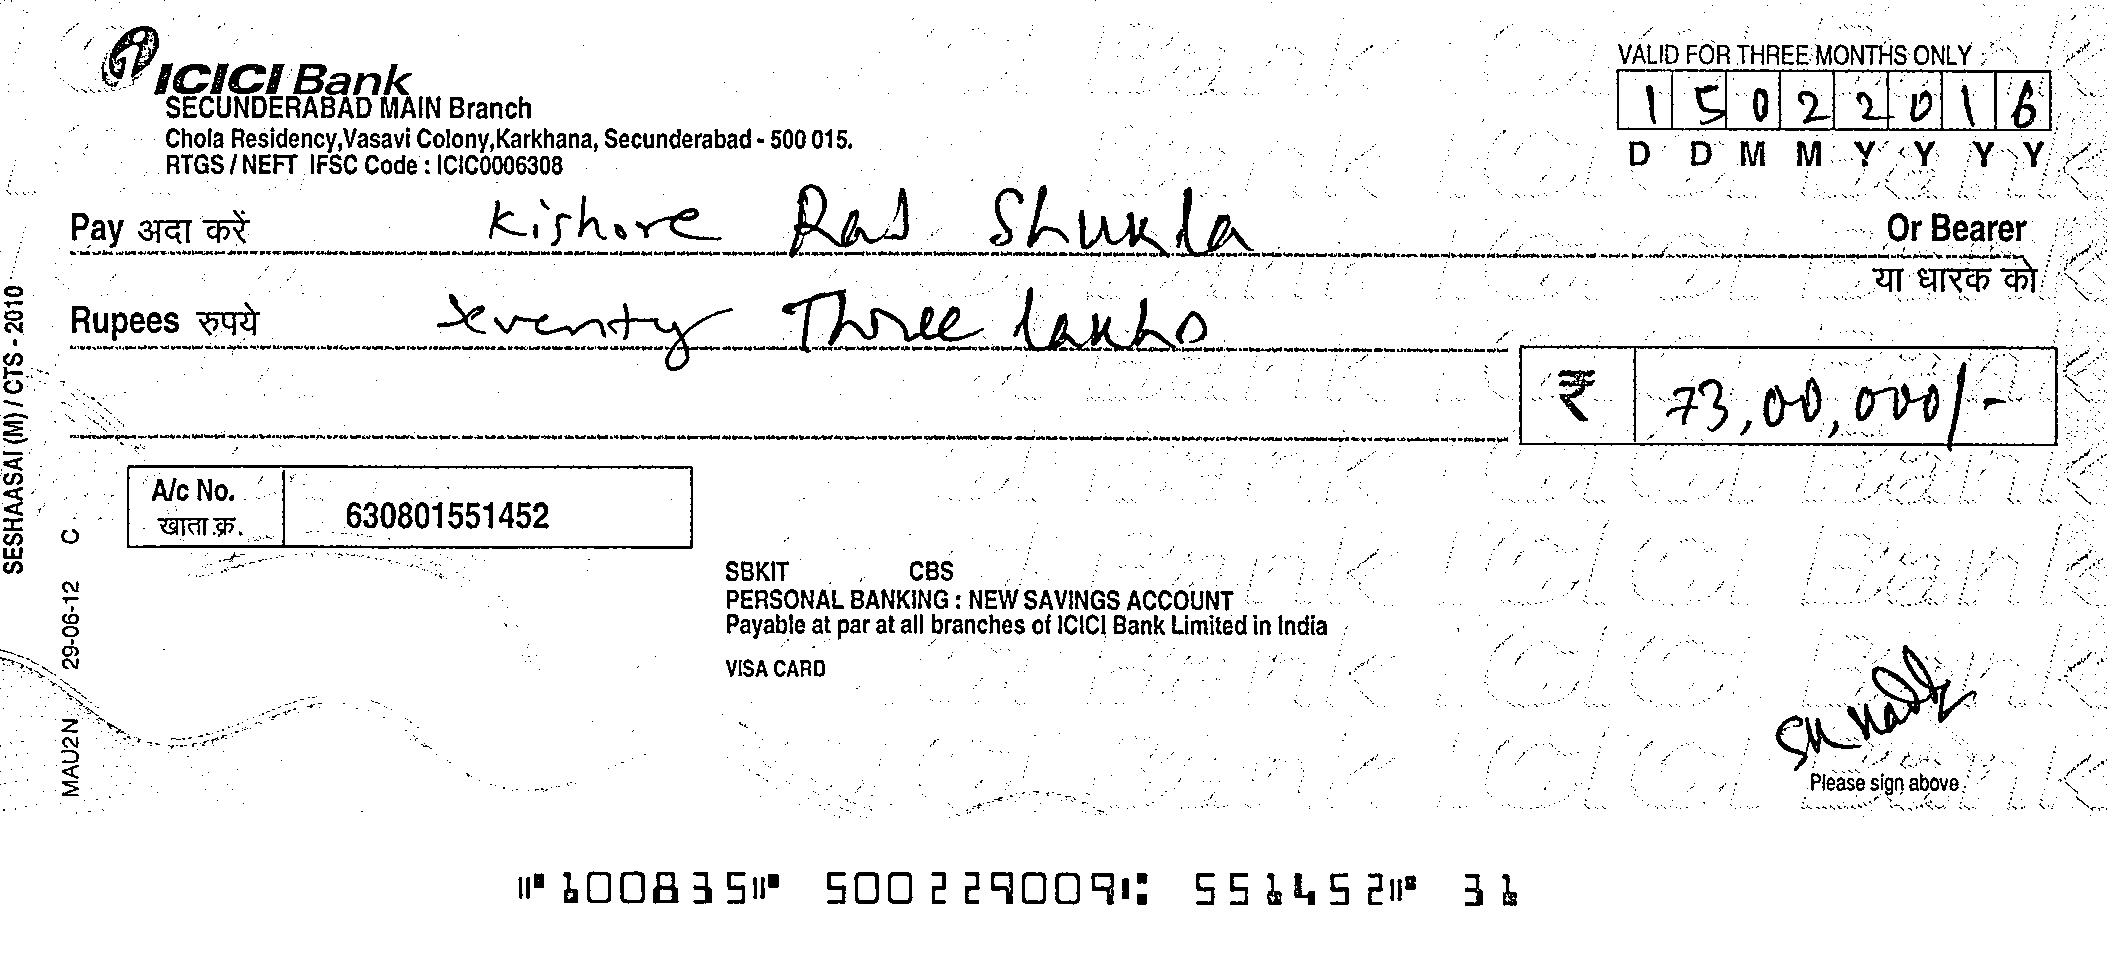 ICICI Bank
SECUNDERABAD MAIN Branch
Chola Residency,Vasavi Colony,Karkhana, Secunderabad - 500 015.
RTGS / NEFT IFSC Code : ICIC0006308
VALID FOR THREE MONTHS ONLY
15022016
D D M M Y Y Y Y
Pay अदा करें Kishore Raj Shukla Or Bearer
या धारक को
Rupees रुपये Seventy Three lakhs
₹ 73,00,000/-
A/c No. 630801551452
खाता क्र.
SBKIT CBS
PERSONAL BANKING : NEW SAVINGS ACCOUNT
Payable at par at all branches of ICICI Bank Limited in India
VISA CARD
Please sign above
SESHAASAI (M) / CTS - 2010
MAU2N 29-06-12 C
⑈100835⑈ 500229009⑆ 551452⑈ 31